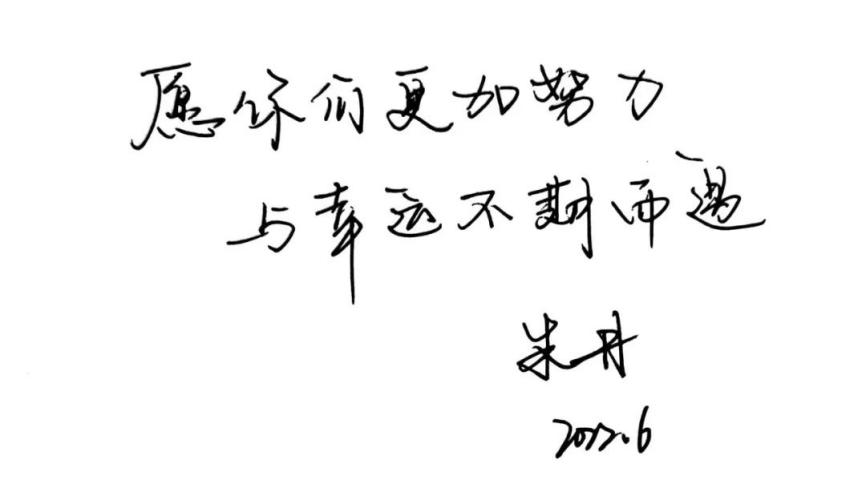 愿你们更加努力
与幸运不期而遇
朱丹